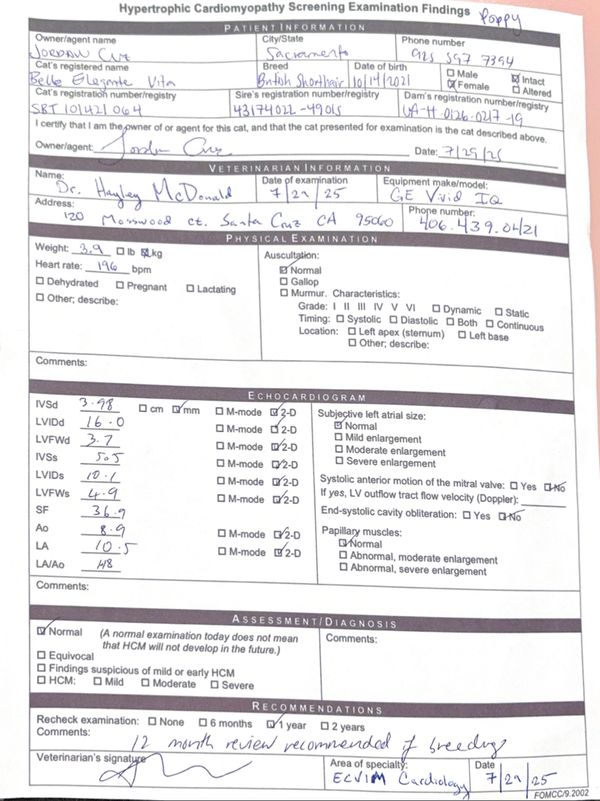 Hypertrophic Cardiomyopathy Screening Examination Findings Poppy
PATIENT INFORMATION
Owner/agent name City/State Phone number
JORDAN Cruz Sacramento 925 597 7394
Cat's registered name Breed Date of birth □ Male ☑ Intact
Belle Elegante Vita British Shorthair 10/14/2021 ☑ Female □ Altered
Cat's registration number/registry Sire's registration number/registry Dam's registration number/registry
SBT 101421 064 43174022-49015 UA-H-0126-0217-19
I certify that I am the owner of or agent for this cat, and that the cat presented for examination is the cat described above.
Owner/agent: Jordan Cruz Date: 7/29/25
VETERINARIAN INFORMATION
Name: Date of examination Equipment make/model:
Dr. Hayley McDonald 7/29/25 GE Vivid IQ
Address: Phone number:
120 Mosswood ct. Santa Cruz CA 95060 406.439.0421
PHYSICAL EXAMINATION
Weight: 3.9 □ lb ☑ kg Auscultation:
Heart rate: 196 bpm ☑ Normal
□ Gallop
□ Dehydrated □ Pregnant □ Lactating □ Murmur. Characteristics:
□ Other; describe: Grade: I II III IV V VI □ Dynamic □ Static
Timing: □ Systolic □ Diastolic □ Both □ Continuous
Location: □ Left apex (sternum) □ Left base
□ Other; describe:
Comments:
ECHOCARDIOGRAM
IVSd 3.98 □ cm ☑ mm □ M-mode ☑ 2-D Subjective left atrial size:
LVIDd 16.0 □ M-mode ☑ 2-D ☑ Normal
LVFWd 3.7 □ M-mode ☑ 2-D □ Mild enlargement
IVSs 5.05 □ M-mode ☑ 2-D □ Moderate enlargement
□ Severe enlargement
LVIDs 10.1 □ M-mode ☑ 2-D Systolic anterior motion of the mitral valve: □ Yes ☑ No
LVFWs 4.9 □ M-mode ☑ 2-D If yes, LV outflow tract flow velocity (Doppler):
SF 36.9 End-systolic cavity obliteration: □ Yes ☑ No
Ao 8.9 □ M-mode ☑ 2-D Papillary muscles:
LA 10.5 □ M-mode ☑ 2-D ☑ Normal
□ Abnormal, moderate enlargement
LA/Ao 1.18 □ Abnormal, severe enlargement
Comments:
ASSESSMENT/DIAGNOSIS
☑ Normal (A normal examination today does not mean Comments:
that HCM will not develop in the future.)
□ Equivocal
□ Findings suspicious of mild or early HCM
□ HCM: □ Mild □ Moderate □ Severe
RECOMMENDATIONS
Recheck examination: □ None □ 6 months ☑ 1 year □ 2 years
Comments: 12 month review recommended if breeding
Veterinarian's signature Area of specialty: Date
ECVIM Cardiology 7/29/25
FOMCC/9.2002